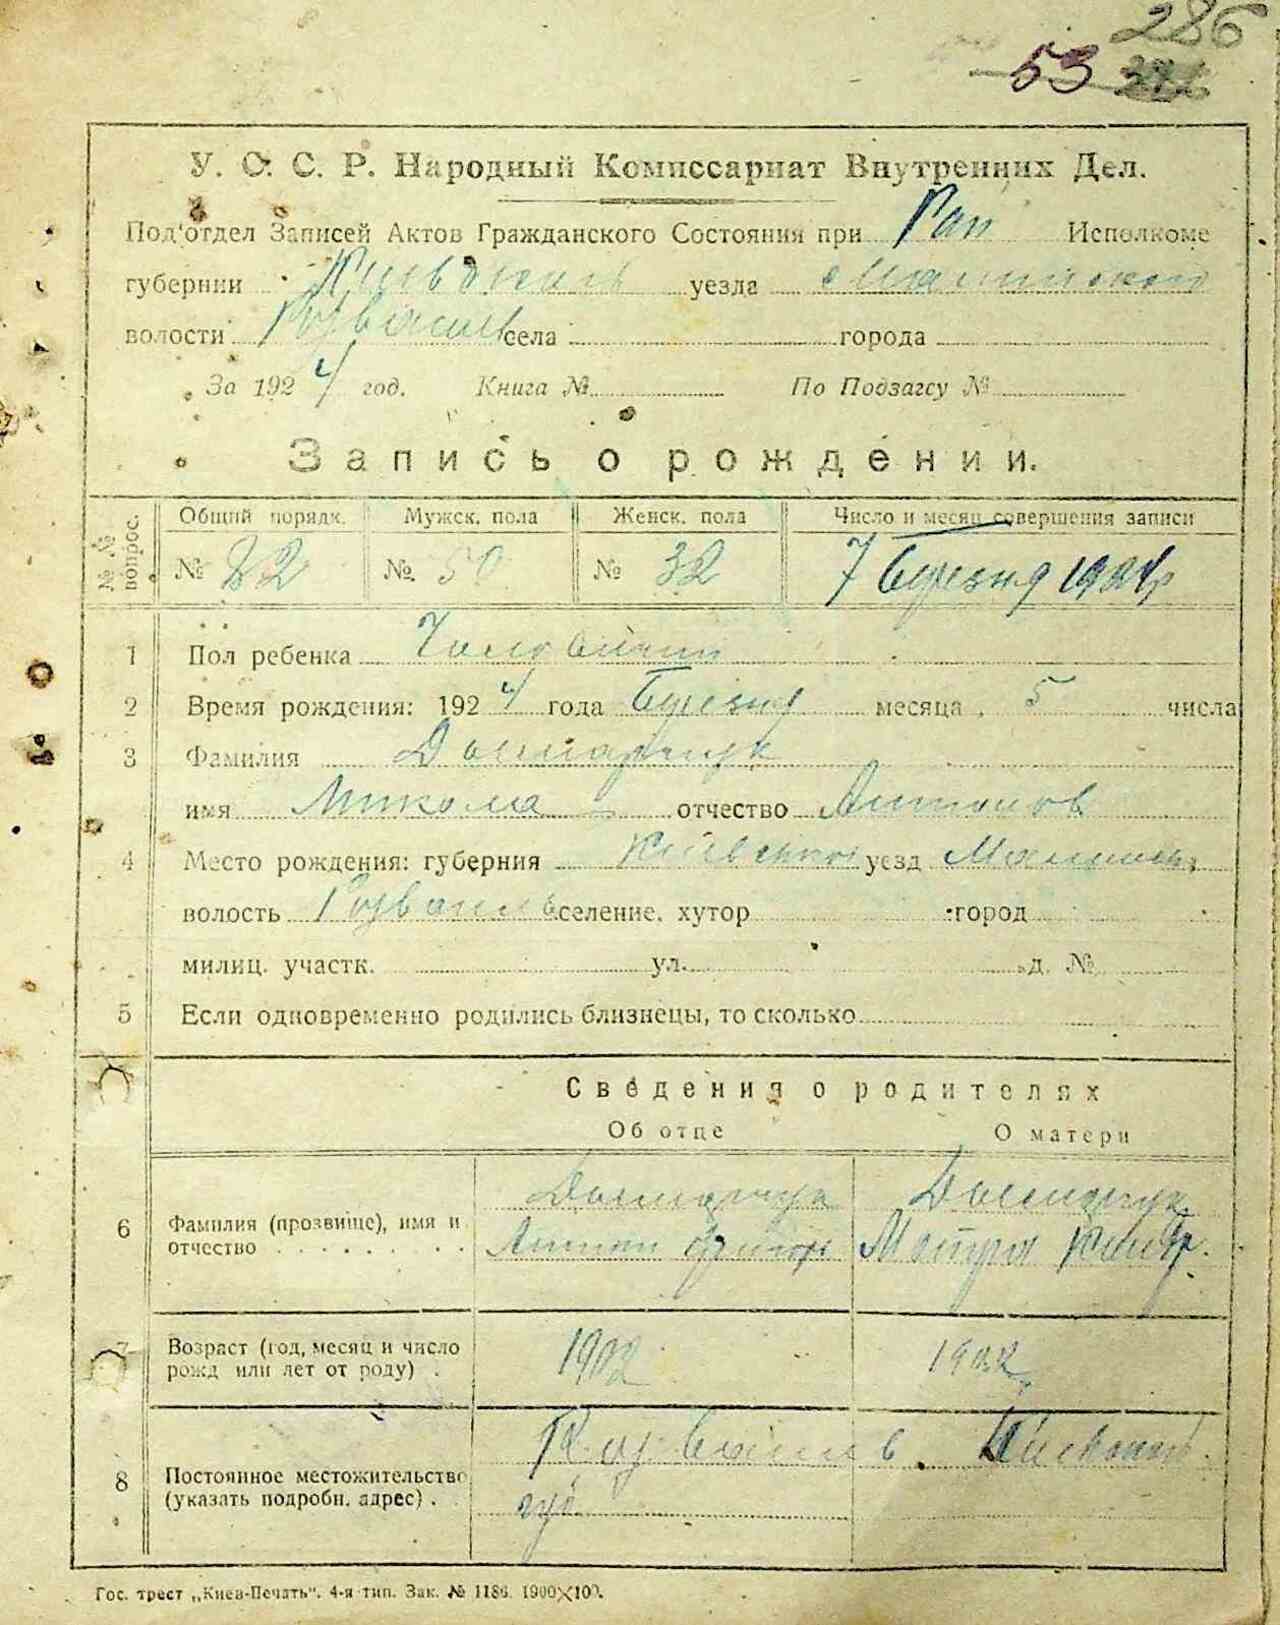 286
53
У. С. С. Р. Народный Комиссариат Внутренних Дел.
Под'отдел Записей Актов Гражданского Состояния при Рай Исполкоме
губернии уезда
волости села города
За 1924 год. Книга № По Подзагсу №
Запись о рождении.
№№ вопрос. Общий порядк. Мужск. пола Женск. пола Число и месяц совершения записи
№ 82 № 50 № 32 7 Березня 1924р
1 Пол ребенка Чоловічий
2 Время рождения: 1924 года Березня месяца 5 числа
3 Фамилия
имя Микола отчество Антонов
4 Место рождения: губерния уезд
волость селение, хутор город
милиц. участк. ул. д. №
5 Если одновременно родились близнецы, то сколько
Сведения о родителях
Об отце О матери
6 Фамилия (прозвище), имя и отчество Антон
7 Возраст (год, месяц и число рожд или лет от роду) 1902 1902
8 Постоянное местожительство (указать подробн. адрес)
губ.
Гос. трест „Киев-Печать". 4-я тип. Зак. № 1186. 1900×100.